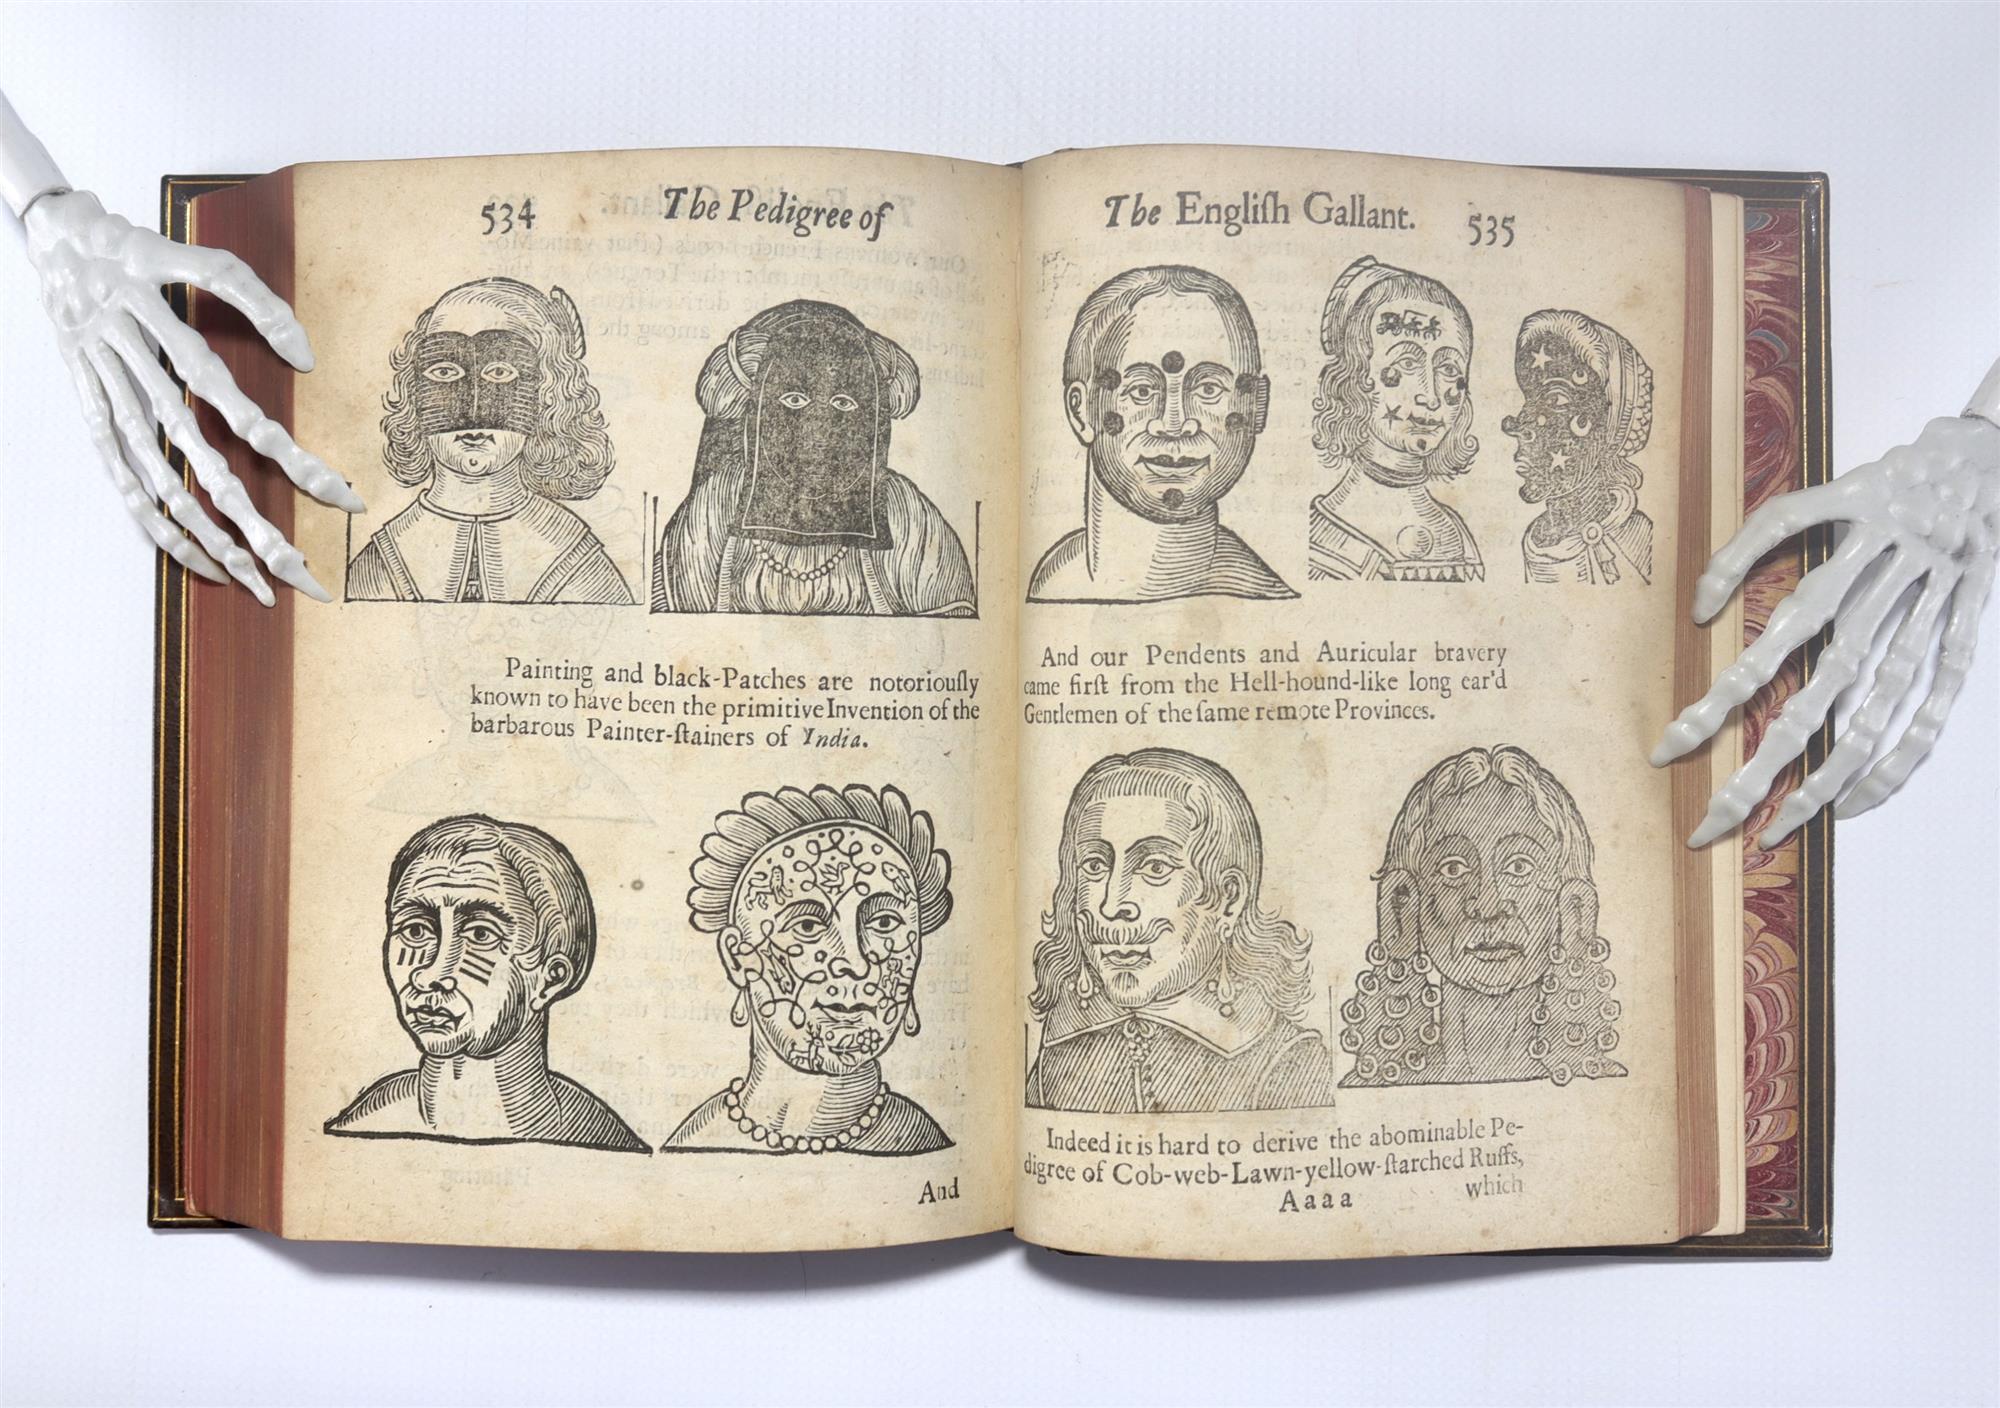 534 The Pedigree of
Painting and black-Patches are notoriouſly
known to have been the primitive Invention of the
barbarous Painter-ſtainers of India.
And
The Engliſh Gallant. 535
And our Pendents and Auricular bravery
came firſt from the Hell-hound-like long ear'd
Gentlemen of the ſame remote Provinces.
Indeed it is hard to derive the abominable Pe-
digree of Cob-web-Lawn-yellow-ſtarched Ruffs,
Aaaa which